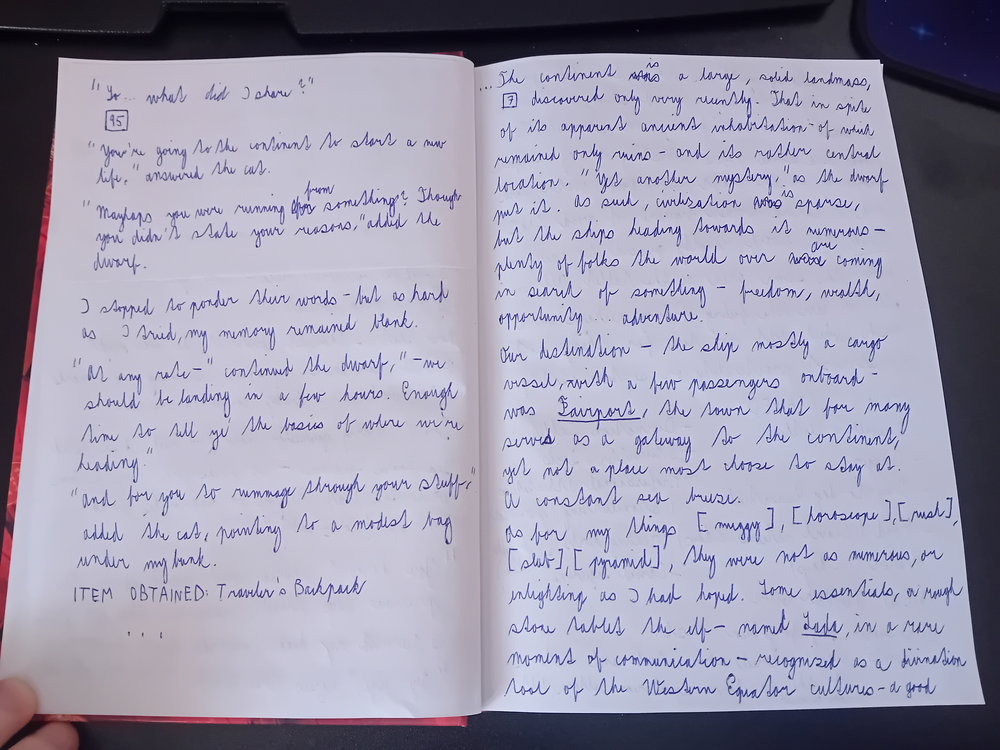 "So... what did I share?"
95
"You're going to the continent to start a new
life," answered the cat.
"Mayhaps you were running from something? Though
you didn't state your reasons," added the
dwarf.
I stopped to ponder their words – but as hard
as I tried, my memory remained blank.
"At any rate–" continued the dwarf, "–we
should be landing in a few hours. Enough
time to tell ye' the basics of where we're
heading."
"And for you to rummage through your stuff,"
added the cat, pointing to a modest bag
under my bunk.
ITEM OBTAINED: Traveler's Backpack
...
...The continent is a large, solid landmass,
7 discovered only very recently. That in spite
of its apparent ancient inhabitation – of which
remained only ruins – and its rather central
location. "Yet another mystery," as the dwarf
put it. As such, civilization is sparse,
but the ships heading towards it numerous –
plenty of folks the world over are coming
in search of something – freedom, wealth,
opportunity... adventure.
Our destination – the ship mostly a cargo
vessel, with a few passengers onboard –
was Fairport, the town that for many
serves as a gateway to the continent,
yet not a place most choose to stay at.
A constant sea breeze.
As for my things [muggy], [horoscope], [rush],
[slab], [pyramid], they were not as numerous, or
enlighting as I had hoped. Some essentials, a rough
stone tablet the elf – named, in a rare
moment of communication – recognized as a divination
tool of the Western Equator cultures – a good